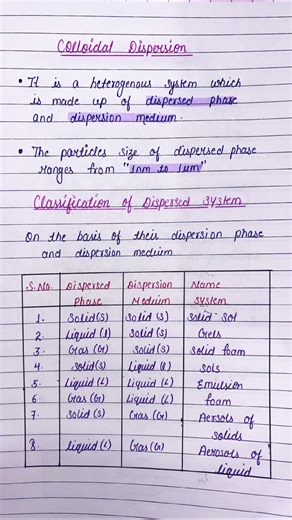 Colloidal Dispersion
• It is a heterogenous system which
is made up of dispersed phase
and dispersion medium.
• The particles size of dispersed phase
ranges from "1nm to 1µm"
Classification of Dispersed System
On the basis of their dispersion phase
and dispersion medium
S.No. Dispersed Phase Dispersion Medium Name System
1. Solid(S) Solid(S) Solid-Sol
2. Liquid(l) Solid(S) Gels
3. Gas(G) Solid(S) Solid foam
4. Solid(S) Liquid(L) Sols
5. Liquid(L) Liquid(L) Emulsion
6. Gas(G) Liquid(L) foam
7. Solid(S) Gas(G) Aersols of solids
8. liquid(L) Gas(G) Aerosols of liquid